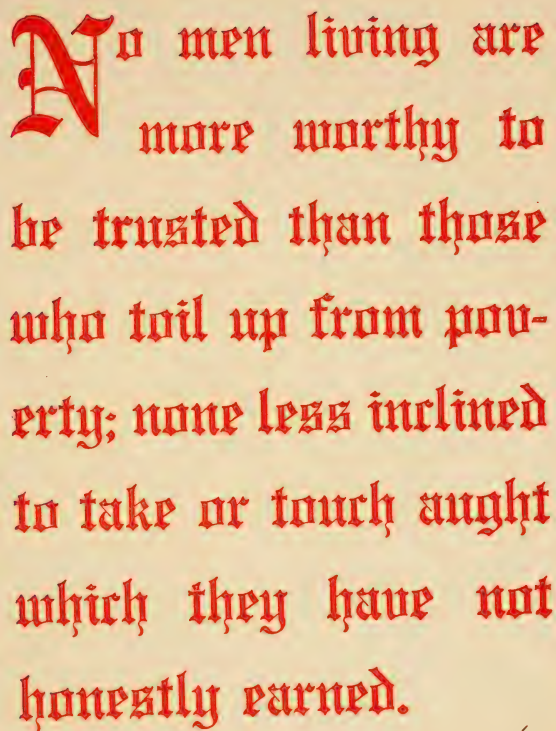 No men living are
more worthy to
be trusted than those
who toil up from pov-
erty; none less inclined
to take or touch aught
which they have not
honestly earned.